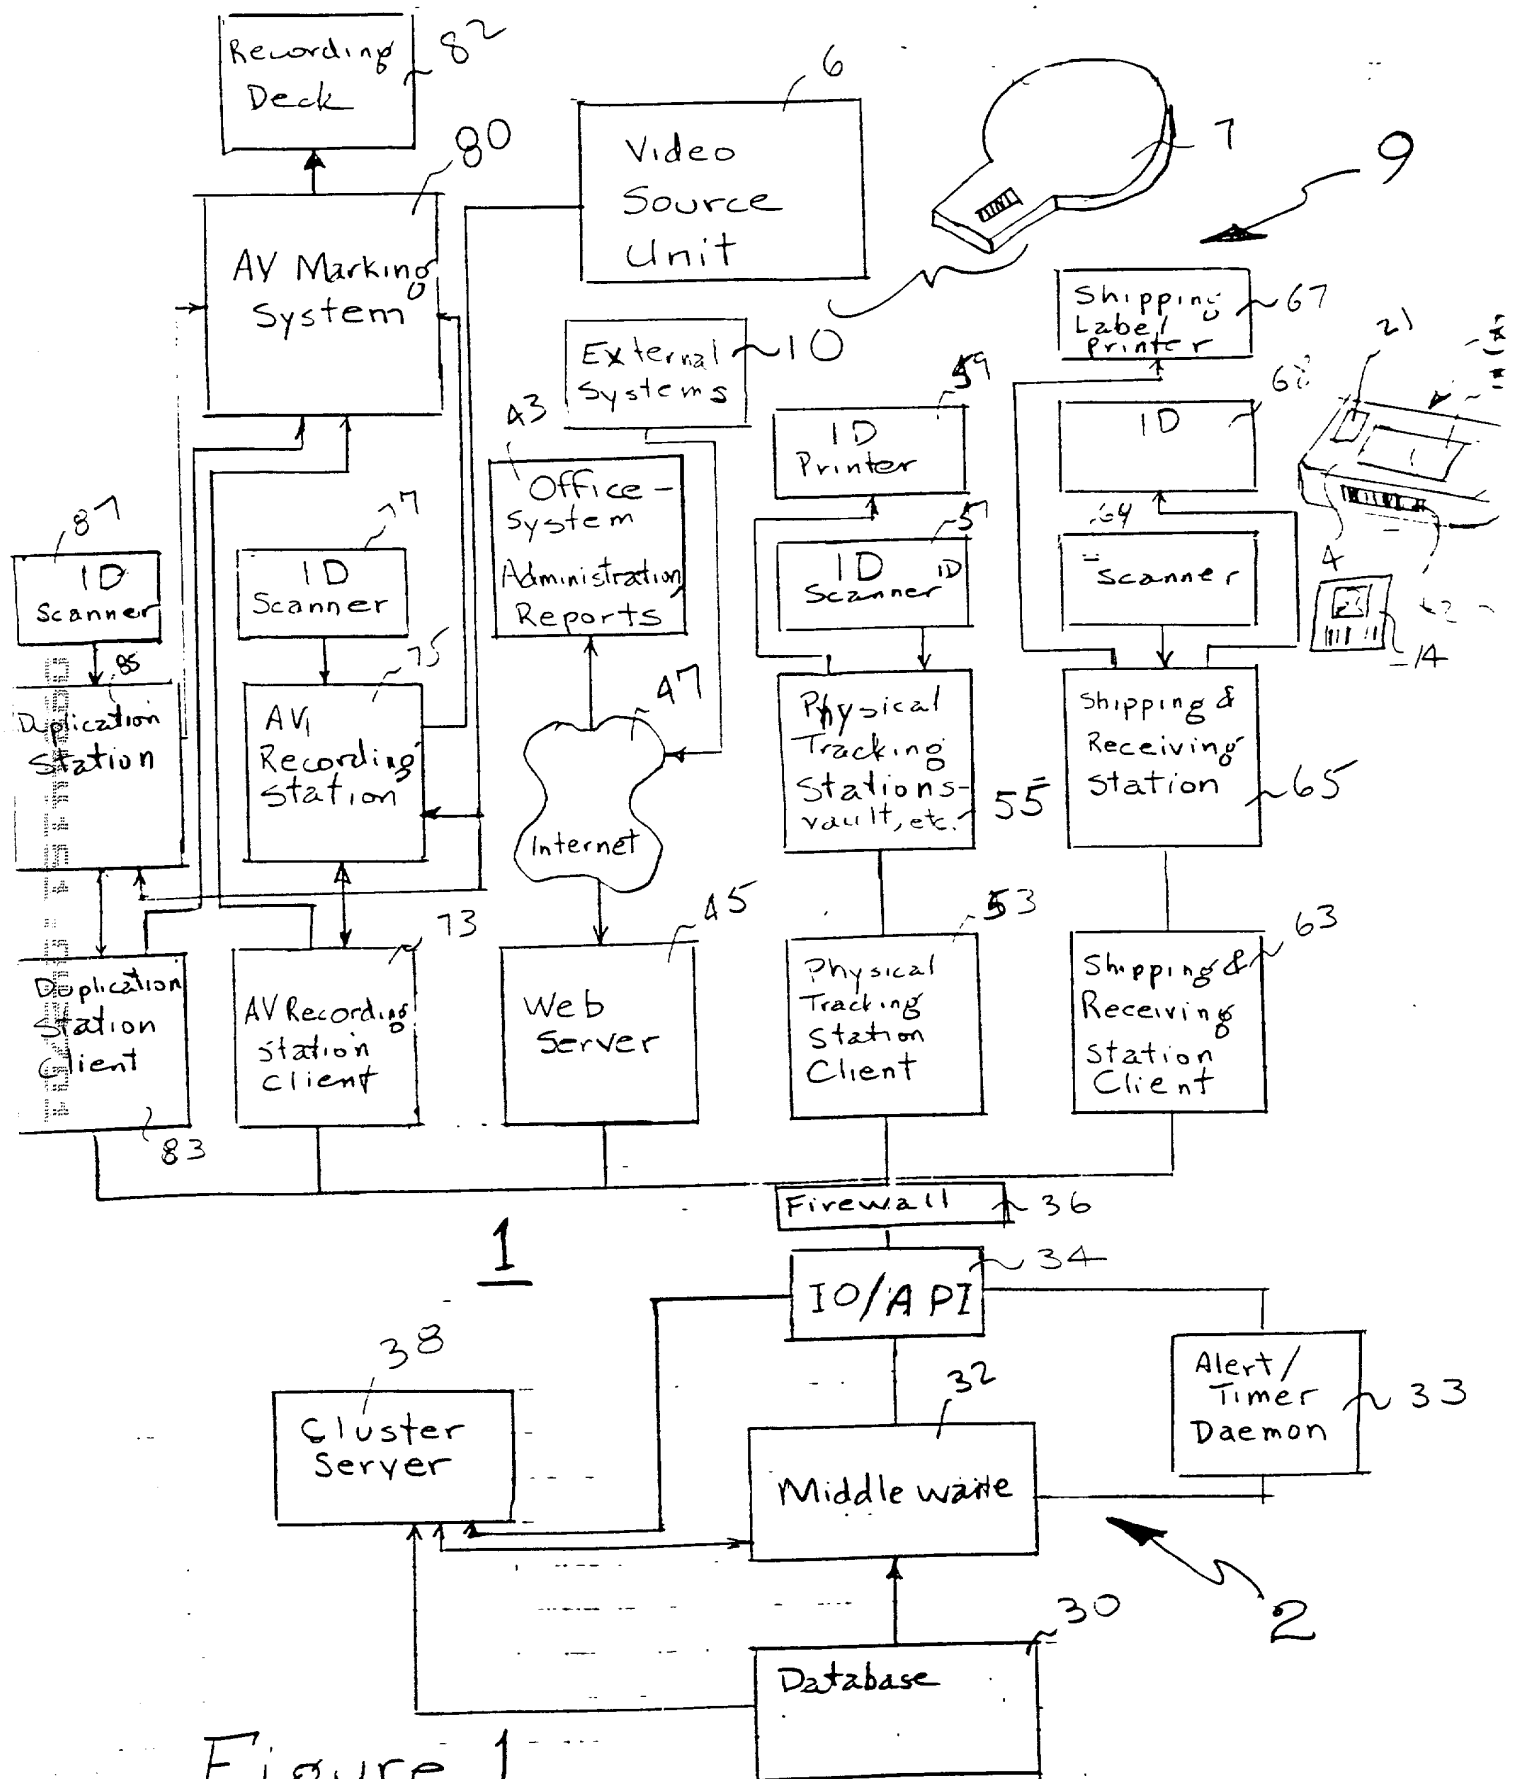 Recording
Deck
82
80
AV Marking
System
6
Video
Source
Unit
7
9
External
Systems
10
Shipping
Label
Printer
67
21
43
Office-
System
Administration
Reports
59
ID
Printer
68
ID
87
ID
Scanner
77
ID
Scanner
57
ID ID
Scanner
64
Scanner
4
14
85
Duplication
Station
75
AV
Recording
Station
47
Internet
Physical
Tracking
Stations-
vault, etc.
55
Shipping &
Receiving
Station
65
Duplication
Station
Client
83
73
AV Recording
Station
Client
45
Web
Server
53
Physical
Tracking
Station
Client
63
Shipping &
Receiving
Station
Client
Firewall
36
1
IO/API
34
38
Cluster
Server
32
Middleware
Alert/
Timer
Daemon
33
2
30
Database
Figure 1